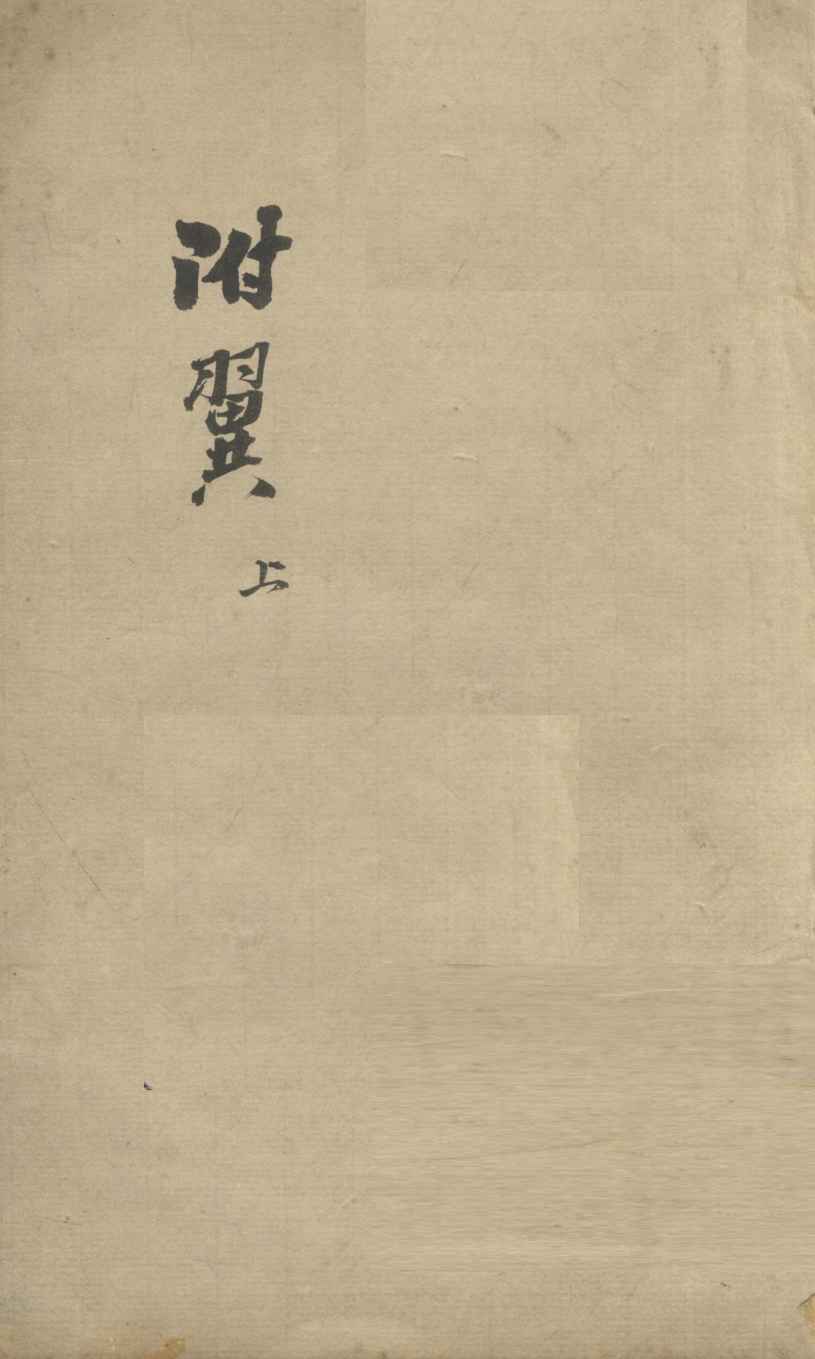 附翼上